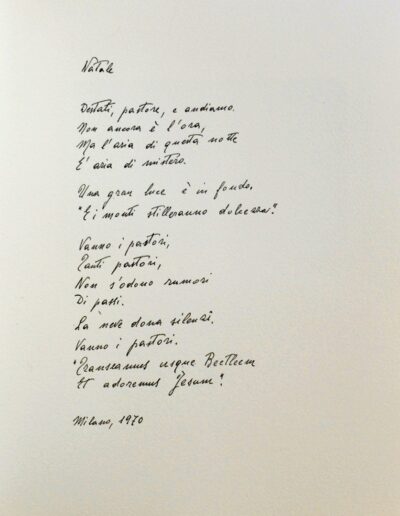 Natale
Destati, pastore, e andiamo.
Non ancora è l'ora,
Ma l'aria di questa notte
E' aria di mistero.
Una gran luce è in fondo.
"E i monti stilleranno dolcezza".
Vanno i pastori,
Tanti pastori,
Non s'odono rumori
Di passi.
La neve dona silenzî.
Vanno i pastori.
"Transeamus usque Bethlem
Et adoremus Jesum".
Milano, 1970